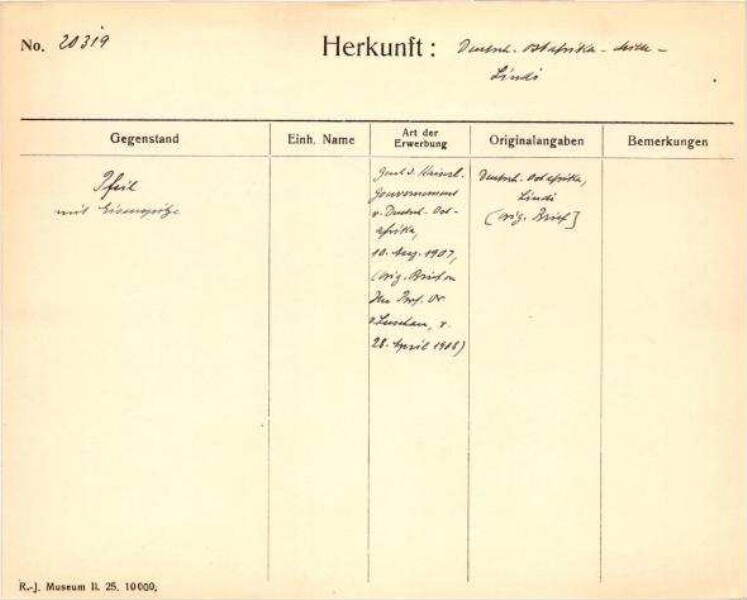 No. 20319
Herkunft: Deutsch. Ostafrika -
Lindi
Gegenstand
Einh. Name
Art der
Erwerbung
Originalangaben
Bemerkungen
Pfeil
mit Eisenspitze
Gouvernement
v. Deutsch. Ost-
afrika,
10. Aug. 1907,
(orig. Brief v.
Prof. Dr
v. Luschan, v.
28. April 1908)
Deutsch. Ostafrika,
Lindi
(orig. Brief]
R.-J. Museum II. 25. 10000.